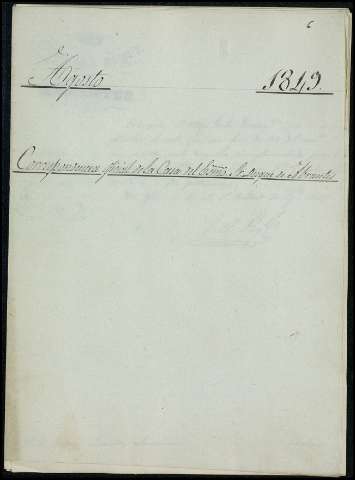 Agosto 1849.
Correspondencia oficial de la Casa del Exmo. Sr. Duque de Abrantes